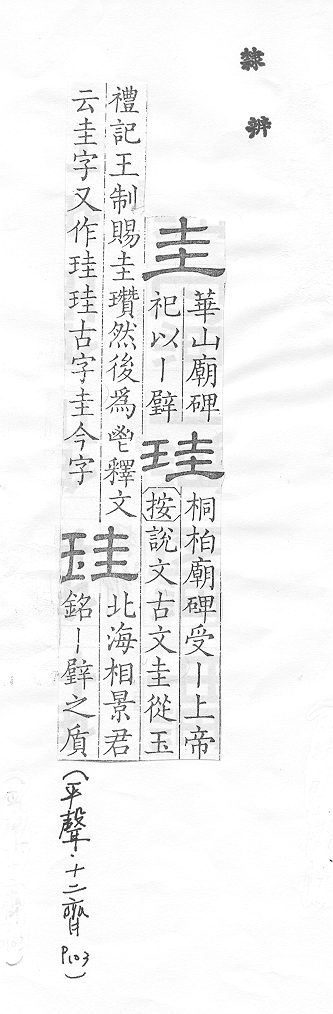 隸辨
圭
華山廟碑
祀以丨璧
珪
桐柏廟碑受丨上帝
按說文古文圭從玉
禮記王制賜圭瓚然後爲鬯釋文
云圭字又作珪珪古字圭今字
珪
北海相景君
銘丨璧之貭
(平聲·十二齊 P103)